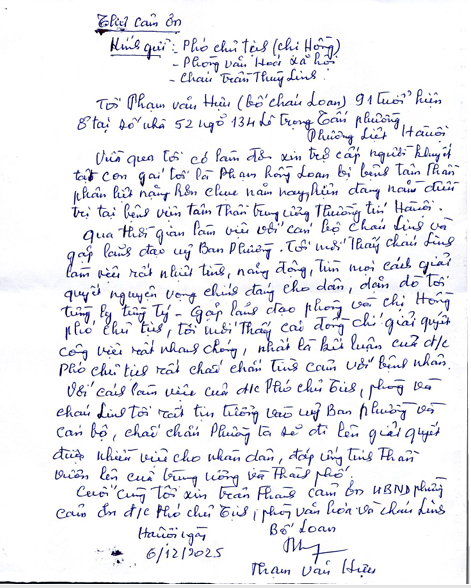 Thư cảm ơn
Kính gửi: Phó chủ tịch (chị Hồng)
- Phòng văn hoá xã hội
- Cháu Trần Thuỳ Linh.
Tôi Phạm văn Hiệu (bố cháu Loan) 91 tuổi hiện
ở tại số nhà 52 ngõ 134 Lê trọng Tấn phường
Phương Liệt Hà nội
Vừa qua tôi có làm đơn xin trợ cấp người khuyết
tật con gái tôi là Phạm hồng Loan bị bệnh tâm thần
phân liệt nặng hơn chục năm nay, hiện đang nằm điều
trị tại bệnh viện tâm thần trung ương Thường tín Hà nội.
Qua thời gian làm việc với cán bộ cháu Linh và
gặp lãnh đạo uỷ Ban Phường. Tôi mới thấy cháu Linh
làm việc rất nhiệt tình, năng động, tìm mọi cách giải
quyết nguyện vọng chính đáng cho dân, dặn dò tôi
từng ly từng tý - Gặp lãnh đạo phòng và chị Hồng
phó chủ tịch, tôi mới thấy các đồng chí giải quyết
công việc rất nhanh chóng, nhất là kết luận của đ/c
Phó chủ tịch rất chắc chắn tình cảm với bệnh nhân.
Với cách làm việc của đ/c Phó chủ tịch, phòng và
cháu Linh tôi rất tin tưởng vào uỷ Ban phường và
cán bộ, chắc chắn Phường ta sẽ đi lên giải quyết
được nhiều việc cho nhân dân, đáp ứng tinh thần
vươn lên của trung ương và Thành phố.
Cuối cùng tôi xin trân thành cảm ơn UBND phường
cảm ơn đ/c Phó chủ tịch, phòng văn hóa và cháu Linh
Hà nội ngày
6/12/2025
Bố Loan
Phạm văn Hiệu